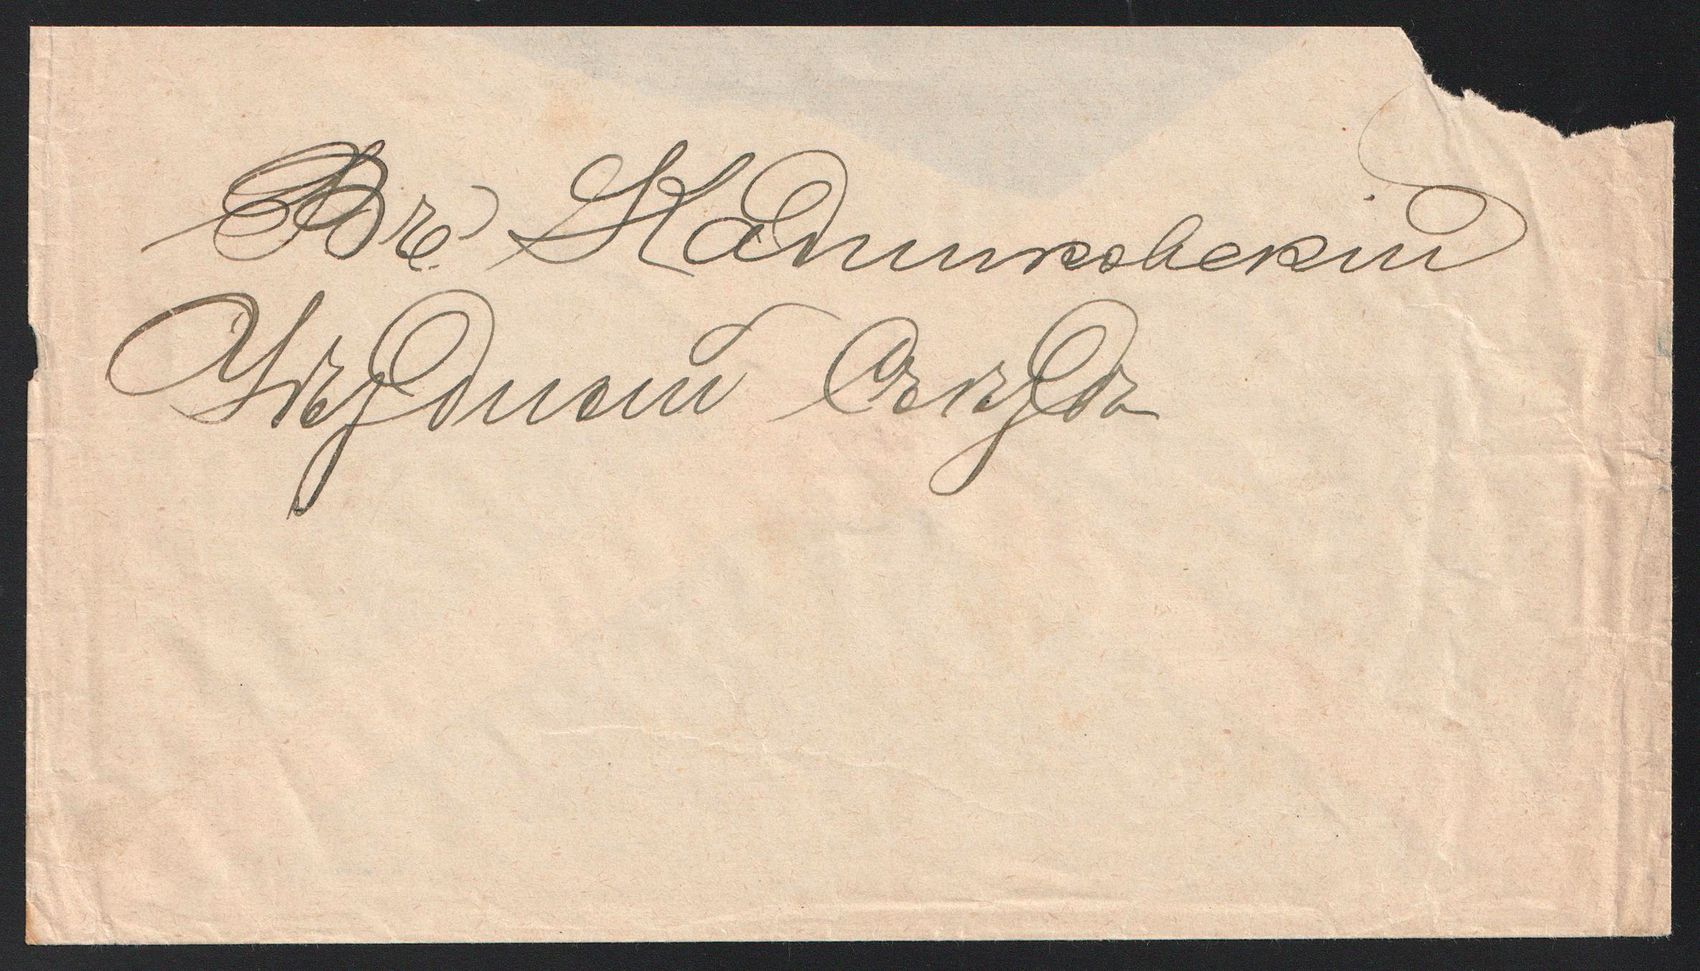 Въ Кадниковскій
Уѣздный Съѣздъ